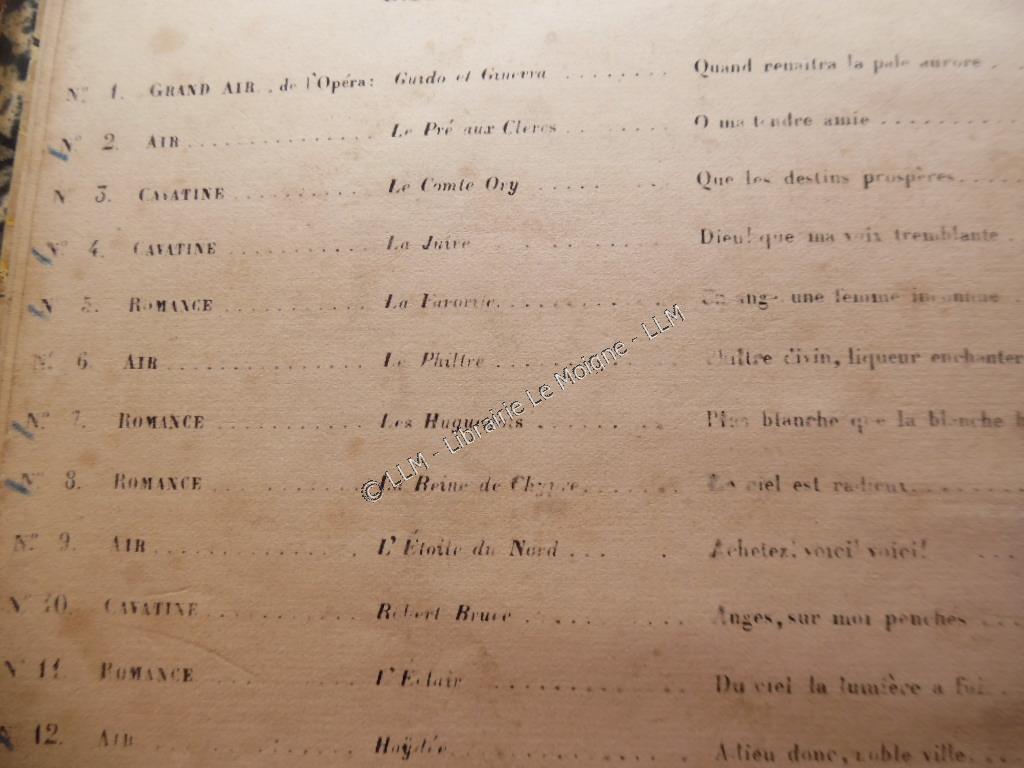 Nº 1. GRAND AIR.. de l'Opéra: Guido et Ginevra ........ Quand renaîtra la pale aurore ..
Nº 2. AIR ............... Le Pré aux Clercs ........ O ma tendre amie ............
Nº 3. CAVATINE ........... Le Comte Ory ........ Que les destins prospères.....
Nº 4. CAVATINE ........... La Juive ............ Dieu! que ma voix tremblante .
Nº 5. ROMANCE ........... La Favorite............ Un ange une femme inconnue
Nº 6. AIR ............... Le Philtre ............ Philtre divin, liqueur enchanter
Nº 7. ROMANCE ........... Les Huguenots ........ Plus blanche que la blanche h
Nº 8. ROMANCE ........... La Reine de Chypre....... Le ciel est radieux.........
Nº 9. AIR ............... L'Étoile du Nord ... . Achetez! voici! voici! ...
Nº 10. CAVATINE ........... Robert Bruce ........ Anges, sur moi penchés ...
Nº 11. ROMANCE ........... L'Éclair ............ Du ciel la lumière a fui...
Nº 12. AIR ............... Haÿdée............ Adieu donc, noble ville...
© LLM - Librairie Le Moigne - LLM